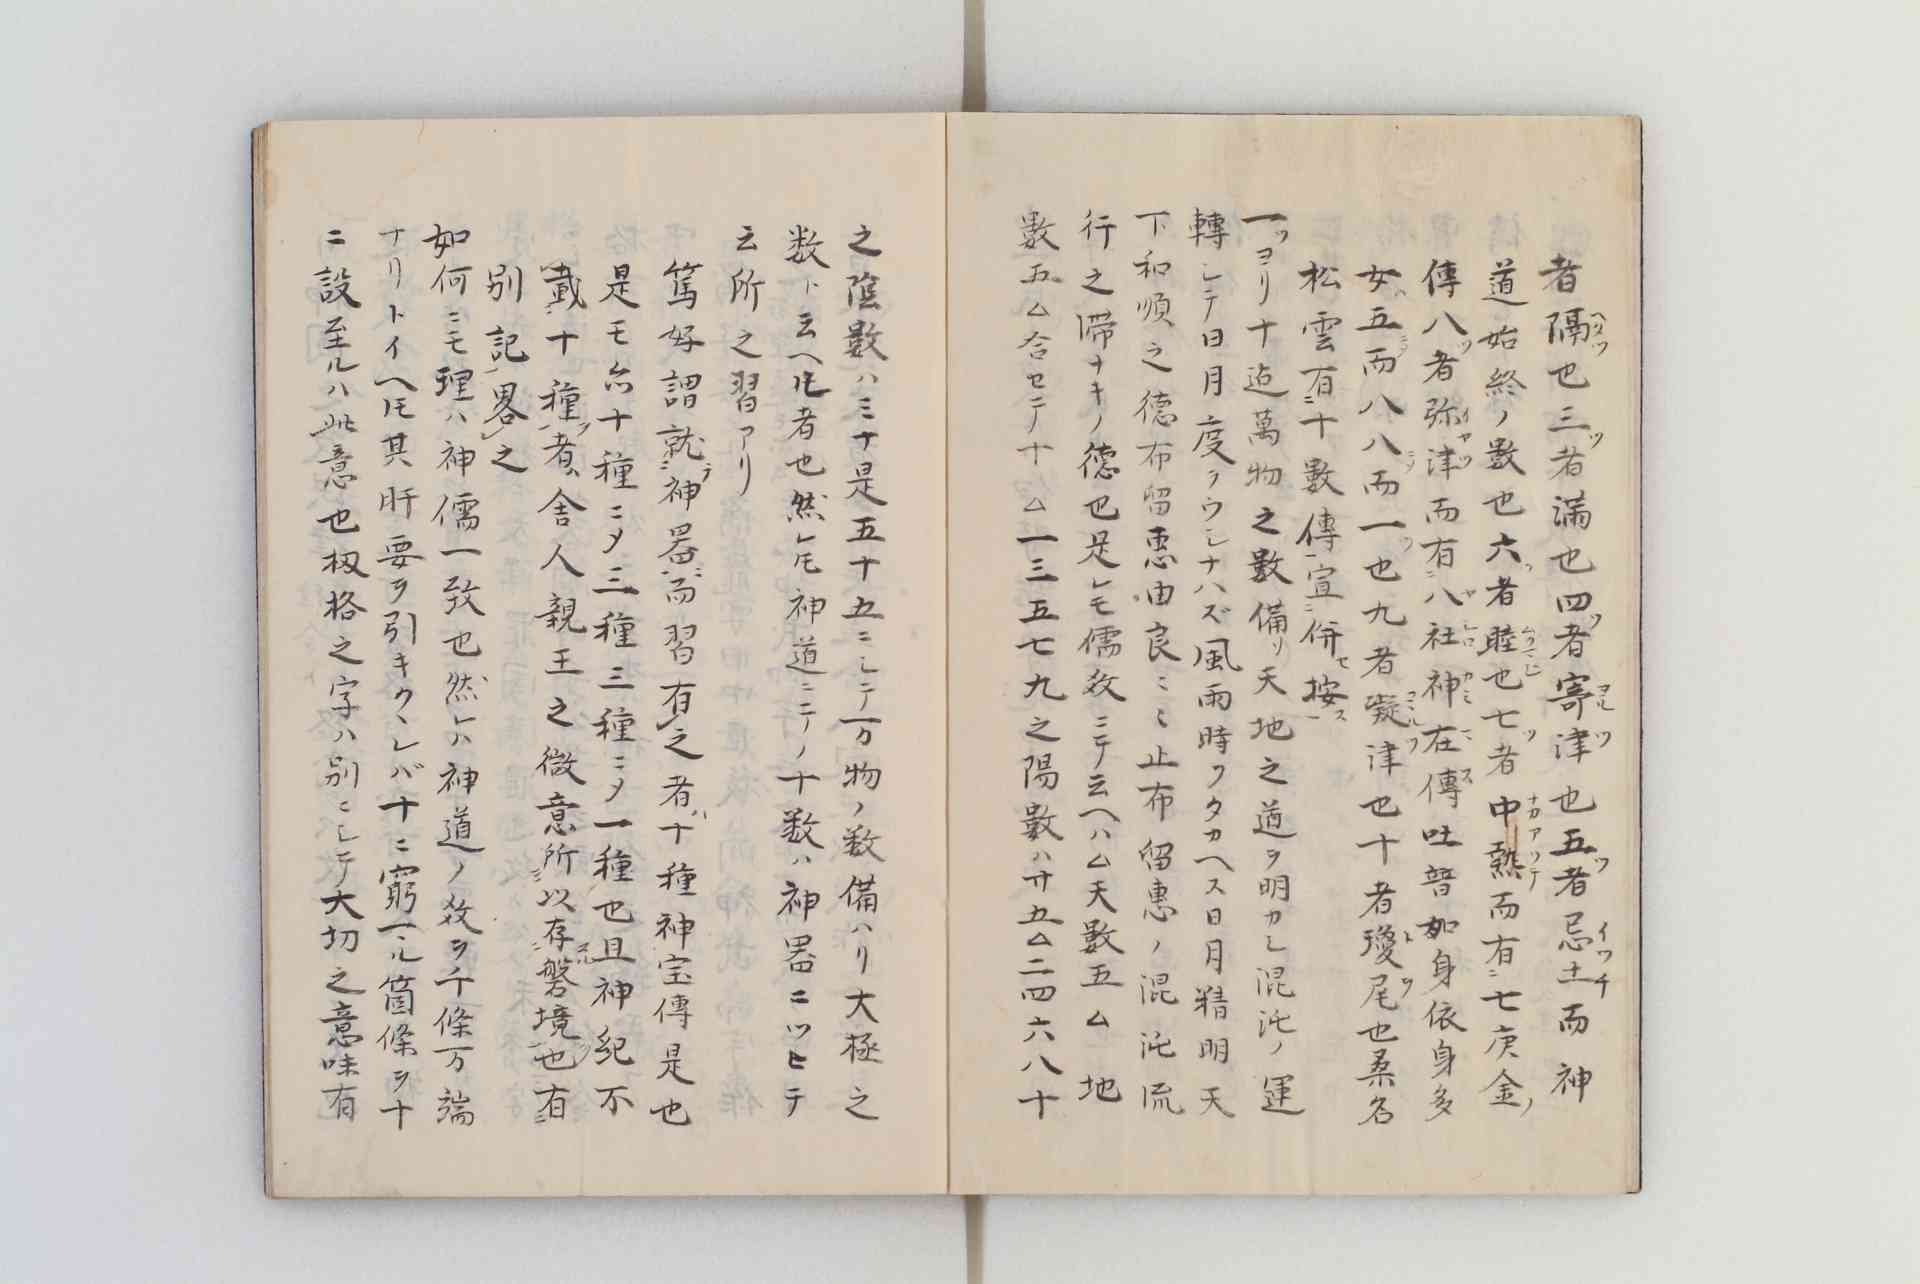 者隔也三者満也四者寄津也五者忌土而神
道始終ノ數也六者睦也七者中熱而有七庚金
傳八者弥津而有八社神在傳吐普加身依身多
女五而八八而一也九者凝津也十者瓊尾也桑名
松雲有十數傳宣併按
一ヨリ十迠萬物之數備リ天地之道ヲ明カシ混沌ノ運
轉シテ日月度ヲウシナハズ風雨時ヲタカヘス日月精明天
下和順之德布留恵由良ミミ止布留惠ノ混沌流
行之滞ナキノ德也是レモ儒教ニテ云ヘハム天數五ム地
數五ム合セテ十ム一三五七九之陽數ハ廿五ム二四六八十
之陰數ハ三十是五十五ニシテ万物ノ数備ハリ大極之
数ト云ヘ𪜈者也然レ𪜈神道ニテノ十数ハ神器ニツヒテ
云所之習アリ
篤好謂就神器而習有之者十種神宝傳是也
是モ亦十種ニメ三種三種ニメ一種也且神紀不
載十種者舍人親王之微意所以存磐境也有
別記畧之
如何ニモ理ハ神儒一致也然レハ神道ノ教ヲ千條万端
ナリトイヘ𪜈其肝要ヲ引キクヽレバ十ニ窮ル箇條ヲ十
ニ設至ルハ此意也扨格之字ハ別ニシテ大切之意味有